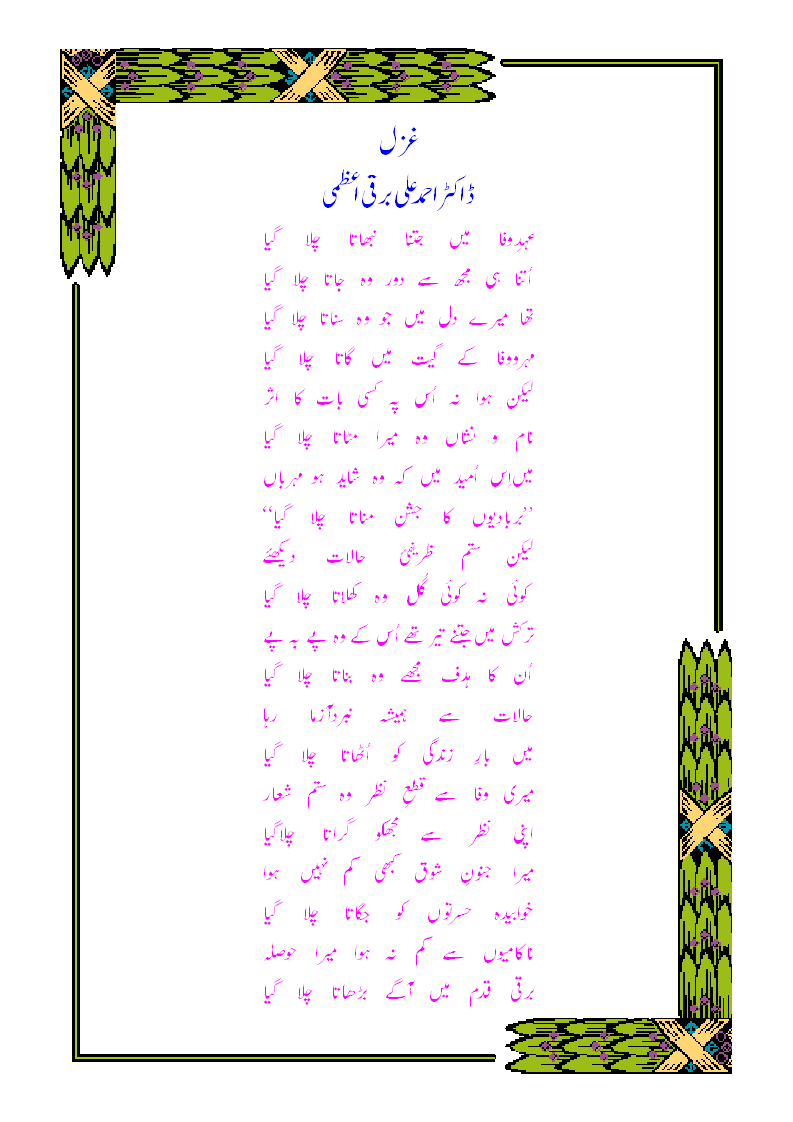 غزل
ڈاکٹر احمد علی برقی اعظمی
عہد وفا میں جتنا نبھاتا چلا گیا
اُتنا ہی مجھ سے دور وہ جاتا چلا گیا
تھا میرے دل میں جو وہ سناتا چلا گیا
مہرووفا کے گیت میں گاتا چلا گیا
لیکن ہوا نہ اُس پہ کسی بات کا اثر
نام و نشاں وہ میرا مٹاتا چلا گیا
میں اِس اُمید میں کہ وہ شاید ہو مہرباں
”بربادیوں کا جشن مناتا چلا گیا“
لیکن ستم ظریفئ حالات دیکھئے
کوئی نہ کوئی گُل وہ کھلاتا چلا گیا
ترکش میں جتنے تیر تھے اُس کے وہ پے بہ پے
اُن کا ہدف مجھے وہ بناتا چلا گیا
حالات سے ہمیشہ نبردآزما رہا
میں بارِ زندگی کو اُٹھاتا چلا گیا
میری وفا سے قطعِ نظر وہ ستم شعار
اپنی نظر سے مجھکو گراتا چلاگیا
میرا جنونِ شوق کبھی کم نہیں ہوا
خوابیدہ حسرتوں کو جگاتا چلا گیا
ناکامیوں سے کم نہ ہوا میرا حوصلہ
برقی قدم میں آگے بڑھاتا چلا گیا